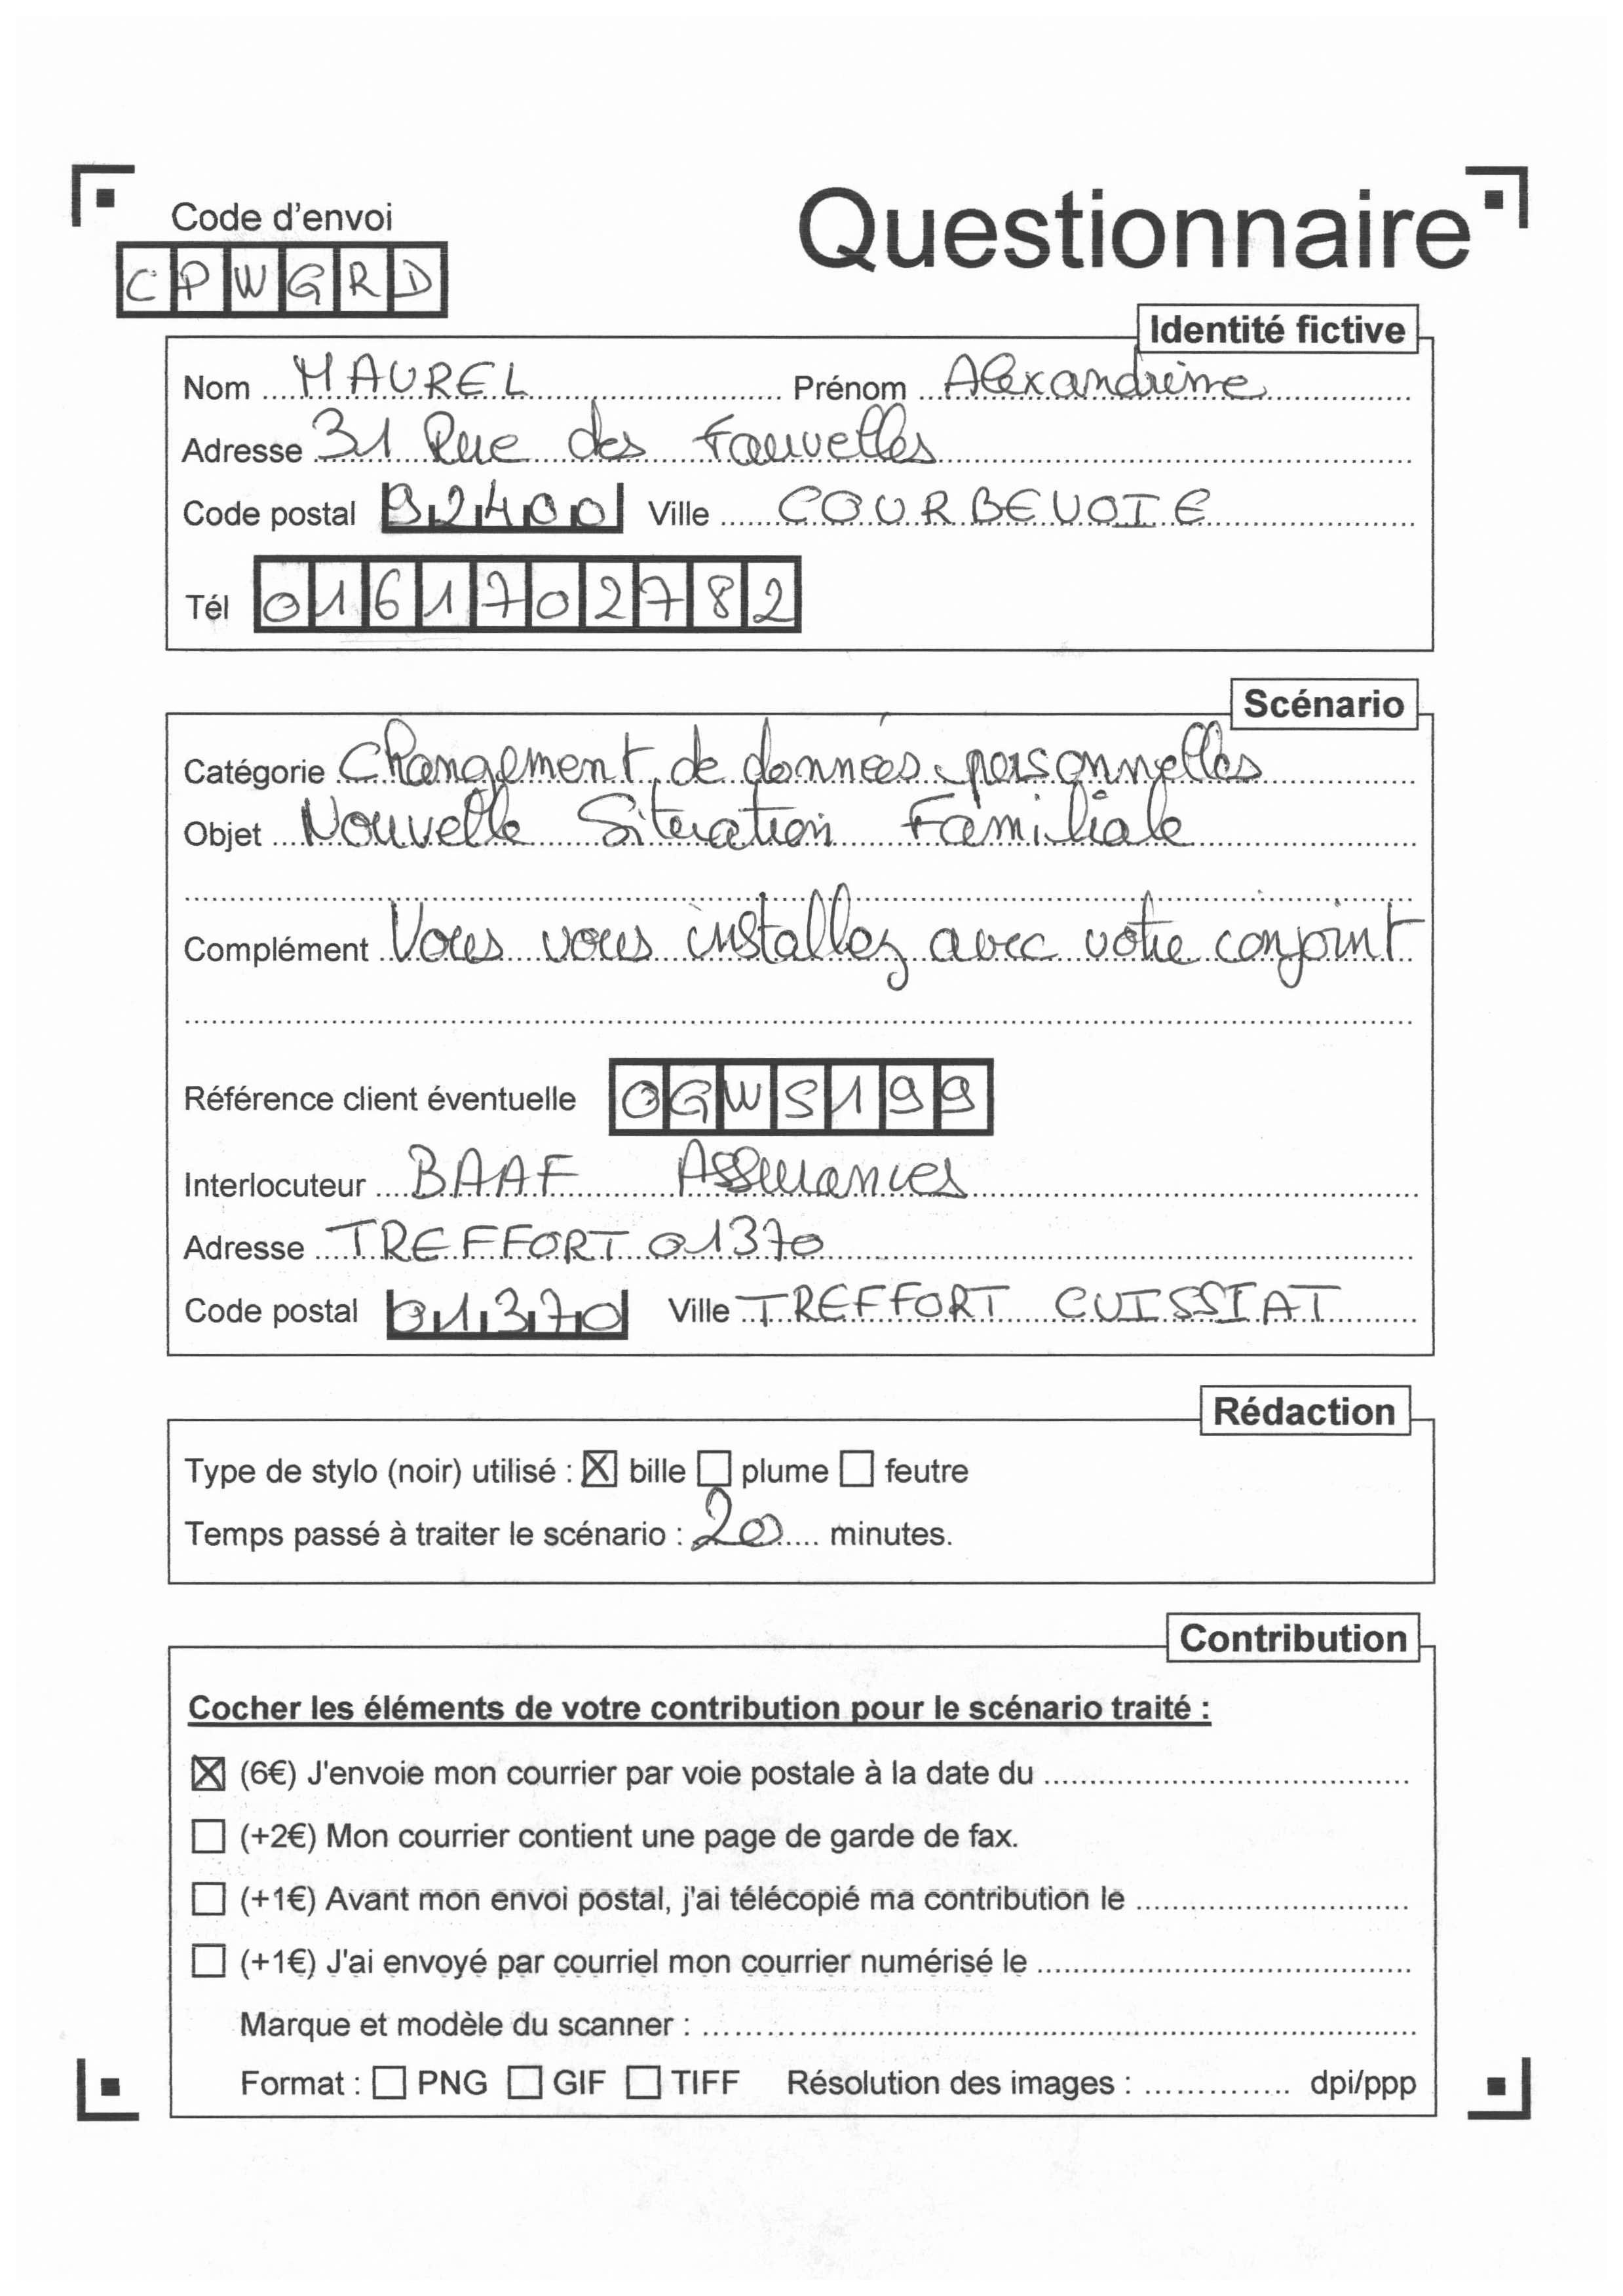 Code d'envoi
Questionnaire
CPWGRD
Identité fictive
Nom MAUREL Prénom Alexandrine
Adresse 31 Rue des Fauvelles
Code postal 92400 Ville COURBEVOIE
Tél 0161702782
Scénario
Catégorie Changement de données personnelles
Objet Nouvelle Situation Familiale
Complément Vous vous installez avec votre conjoint
Référence client éventuelle OGWS199
Interlocuteur BAAF Assurances
Adresse TREFFORT 01370
Code postal 01370 Ville TREFFORT CUISSIAT
Rédaction
Type de stylo (noir) utilisé : ☒ bille ☐ plume ☐ feutre
Temps passé à traiter le scénario : 20 minutes.
Contribution
Cocher les éléments de votre contribution pour le scénario traité :
☒ (6€) J'envoie mon courrier par voie postale à la date du
☐ (+2€) Mon courrier contient une page de garde de fax.
☐ (+1€) Avant mon envoi postal, j'ai télécopié ma contribution le
☐ (+1€) J'ai envoyé par courriel mon courrier numérisé le
Marque et modèle du scanner :
Format : ☐ PNG ☐ GIF ☐ TIFF Résolution des images : dpi/ppp